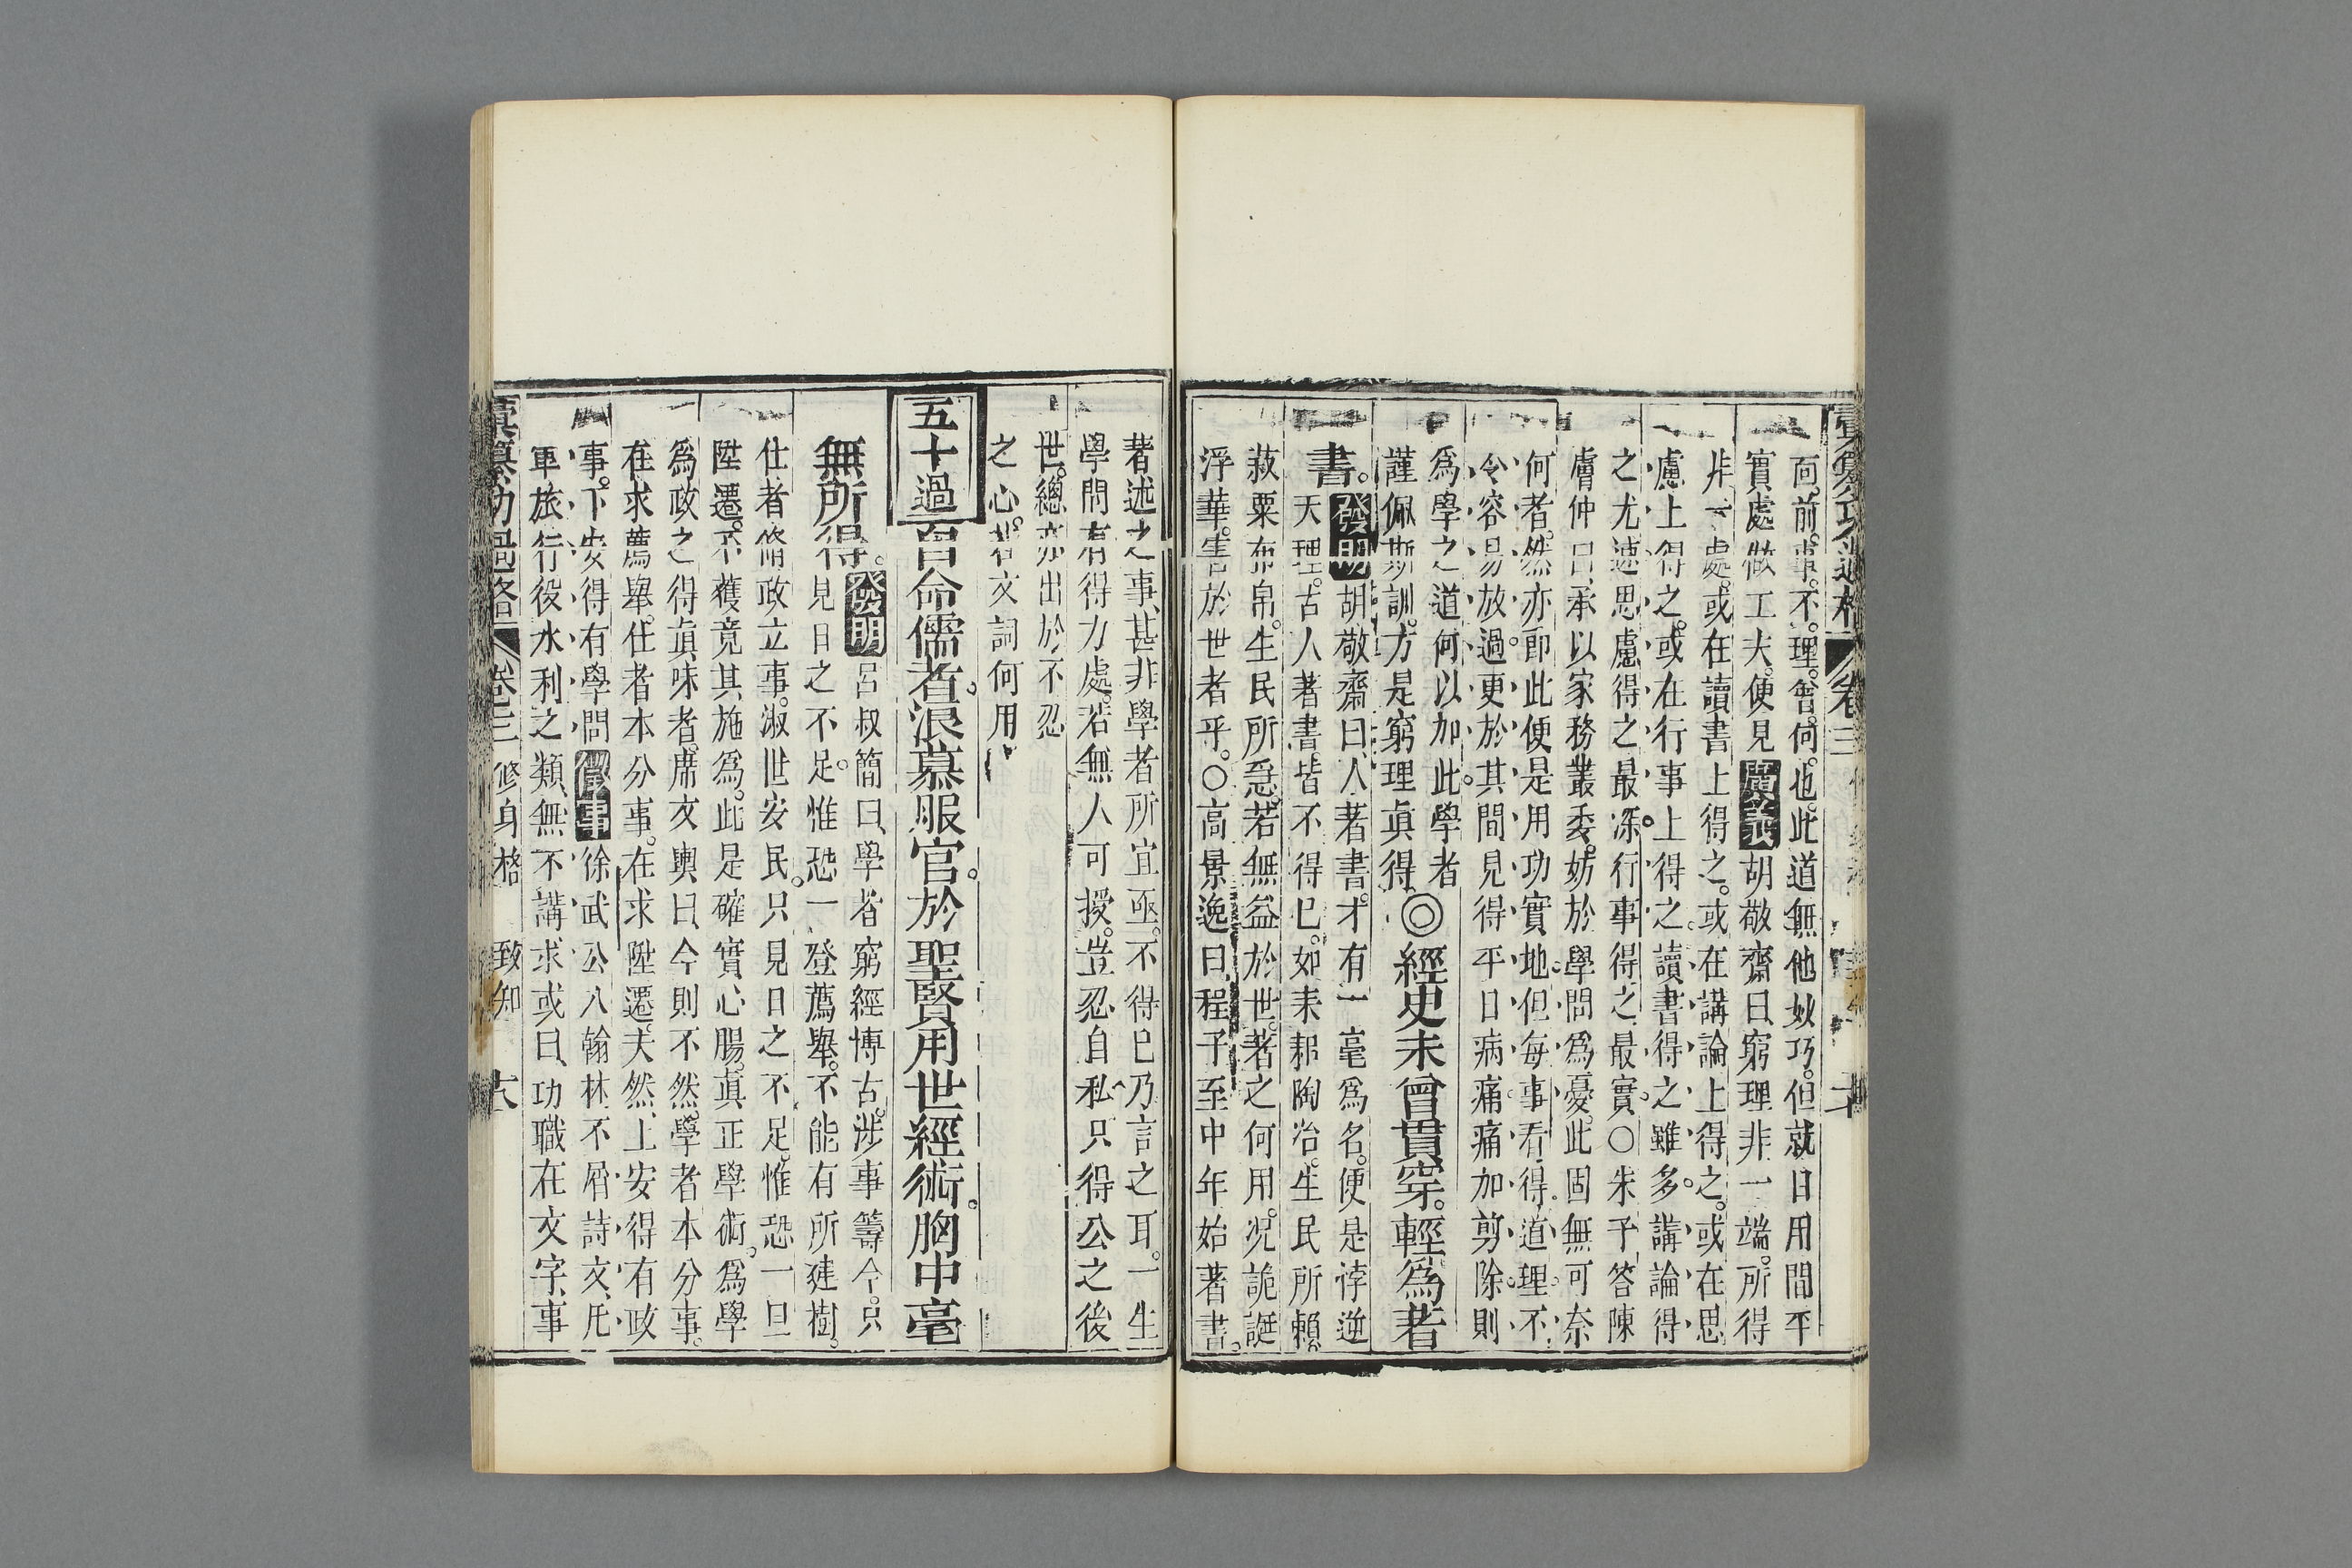 彙纂功過格 卷三
向前事不理會何也此道無他妙巧但就日用間平
實處做工夫便見 廣義 胡敬齋曰窮理非一端所得
非一處或在讀書上得之或在講論上得之或在思
慮上得之或在行事上得之讀書得之雖多講論得
之尤速思慮得之最深行事得之最實○朱子答陳
膚仲曰承以家務叢委妨於學問為憂此固無可奈
何者然亦即此便是用功實地但每事看得道理不
令容易放過更於其間見得平日病痛痛加剪除則
為學之道何以加此學者
謹佩斯訓方是窮理眞得
◎經史未曾貫穿輕為著
書。發明 胡敬齋曰人著書才有一毫為名便是悖逆
天理古人著書皆不得已如耒耜陶冶生民所賴
菽粟布帛生民所急若無益於世著之何用況詭誕
浮華害於世者乎○高景逸曰程子至中年始著書
著述之事甚非學者所宜亟不得已乃言之耳一生
學問有得力處若無人可授豈忍自私只得公之後
世總亦出於不忍
之心若文詞何用
五十過 自命儒者浪慕服官於聖賢用世經術胸中毫
無所得。發明 呂叔簡曰學者窮經博古涉事籌今只
見日之不足惟恐一登薦舉不能有所建樹
仕者脩政立事淑世安民只見日之不足惟恐一旦
陞遷不獲竟其施為此是確實心腸眞正學術為學
為政之得眞味者席文輿曰今則不然學者本分事
在求薦舉仕者本分事在求陞遷夫然上安得有政
事下安得有學問 徵事 徐武公入翰林不屑詩文凡
軍旅行役水利之類無不講求或曰功職在文字事
彙纂功過格 卷三 修身格 致知 十六